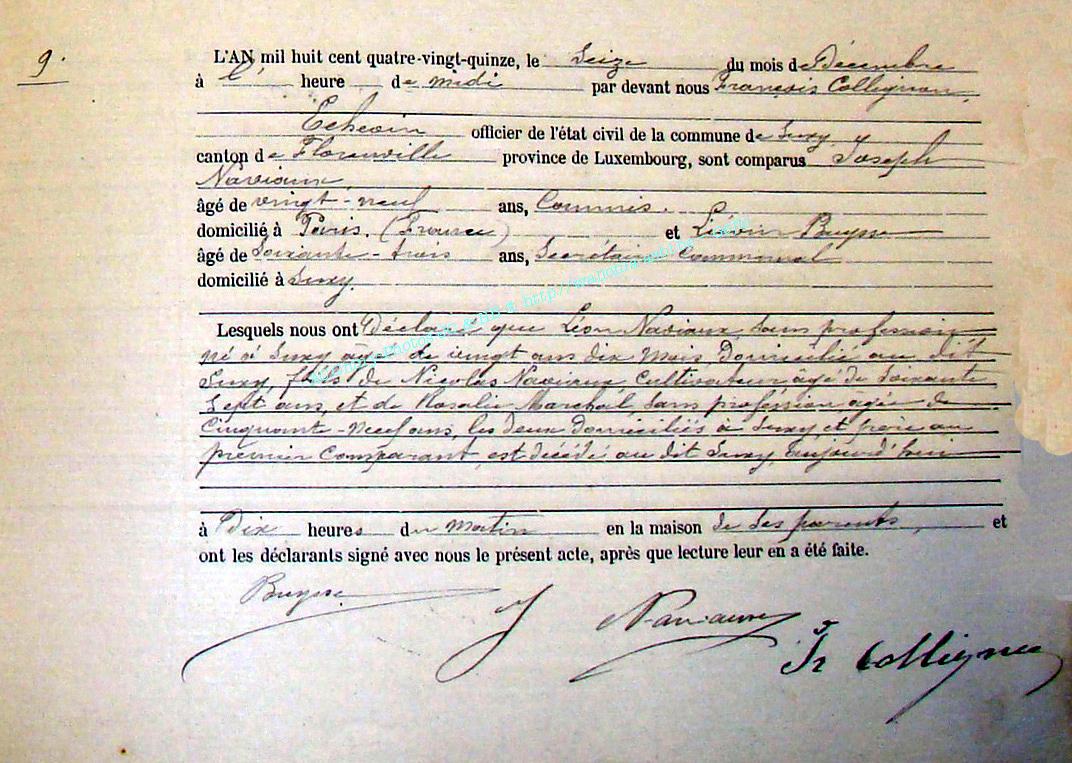 9.
L'AN mil huit cent quatre-vingt-quinze, le Seize du mois de Décembre
à l' heure de midi par devant nous François Collignon,
Echevin officier de l'état civil de la commune de Suxy,
canton de Florenville province de Luxembourg, sont comparus Joseph
Naviaux,
âgé de vingt-neuf ans, Commis.
domicilié à Paris. (France) et Liévin Buysse
âgé de Soixante-trois ans, Secrétaire Communal
domicilié à Suxy.
Lesquels nous ont Déclaré que Léon Naviaux, Sans profession
né à Suxy âgé de vingt ans dix mois, Domicilié au dit
Suxy, fils de Nicolas Naviaux, Cultivateur, âgé de Soixante
Sept ans, et de Rosalie Marchal, Sans profession, âgée de
Cinquante-neuf ans, les deux Domiciliés à Suxy, et frère au
premier Comparant, est décédé au dit Suxy, aujourd'hui
à Dix heures du matin en la maison de ses parents, et
ont les déclarants signé avec nous le présent acte, après que lecture leur en a été faite.
Buysse
J Naviaux
Fr Collignon